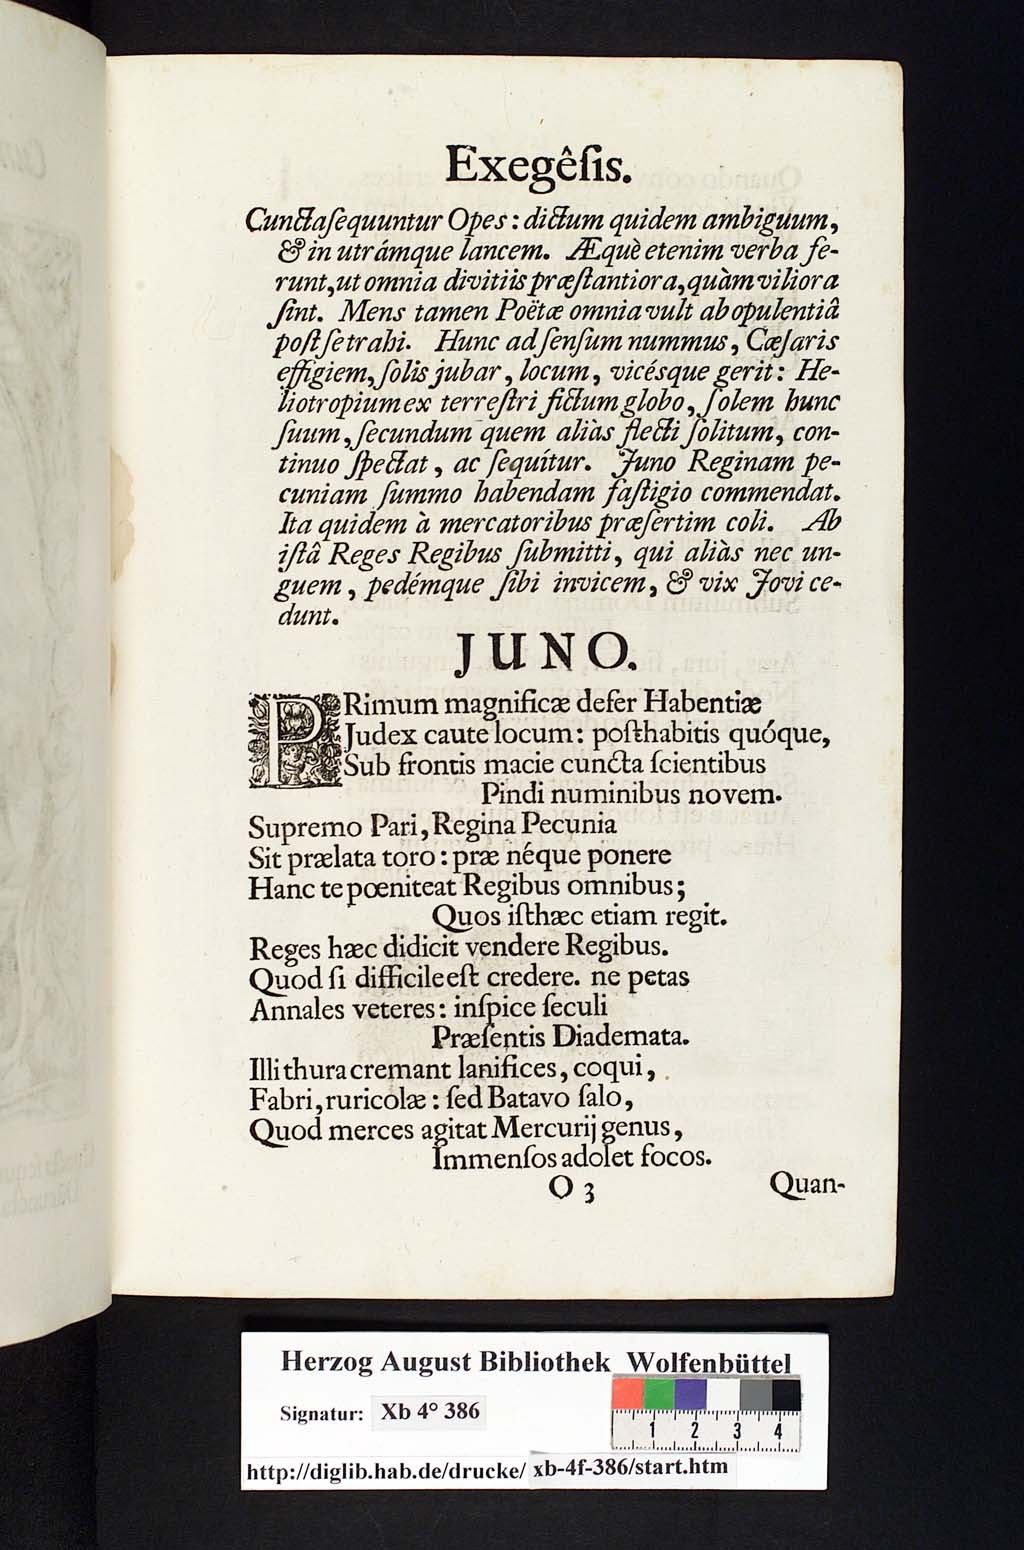 Exegêſis.
Cunctaſequuntur Opes: dictum quidem ambiguum,
& in utrámque lancem. Æquè etenim verba fe-
runt, ut omnia divitiis præſtantiora, quàm viliora
ſint. Mens tamen Poëtæ omnia vult ab opulentiâ
poſt ſe trahi. Hunc ad ſenſum nummus, Cæſaris
effigiem, ſolis jubar, locum, vicésque gerit: He-
liotropium ex terreſtri fictum globo, ſolem hunc
ſuum, ſecundum quem aliàs flecti ſolitum, con-
tinuo ſpectat, ac ſequítur. Juno Reginam pe-
cuniam ſummo habendam faſtigio commendat.
Ita quidem à mercatoribus præſertim coli. Ab
iſtâ Reges Regibus ſubmitti, qui aliàs nec un-
guem, pedémque ſibi invicem, & vix Jovi ce-
dunt.
JUNO.
PRimum magnificæ defer Habentiæ
Judex caute locum: poſthabitis quóque,
Sub frontis macie cuncta ſcientibus
Pindi numinibus novem.
Supremo Pari, Regina Pecunia
Sit prælata toro: præ néque ponere
Hanc te pœniteat Regibus omnibus;
Quos iſthæc etiam regit.
Reges hæc didicit vendere Regibus.
Quod ſi difficile eſt credere. ne petas
Annales veteres: inſpice ſeculi
Præſentis Diademata.
Illi thura cremant lanifices, coqui,
Fabri, ruricolæ: ſed Batavo ſalo,
Quod merces agitat Mercurij genus,
Immenſos adolet focos.
O 3 Quan-
Herzog August Bibliothek Wolfenbüttel
Signatur: Xb 4° 386
1 2 3 4
http://diglib.hab.de/drucke/ xb-4f-386/start.htm